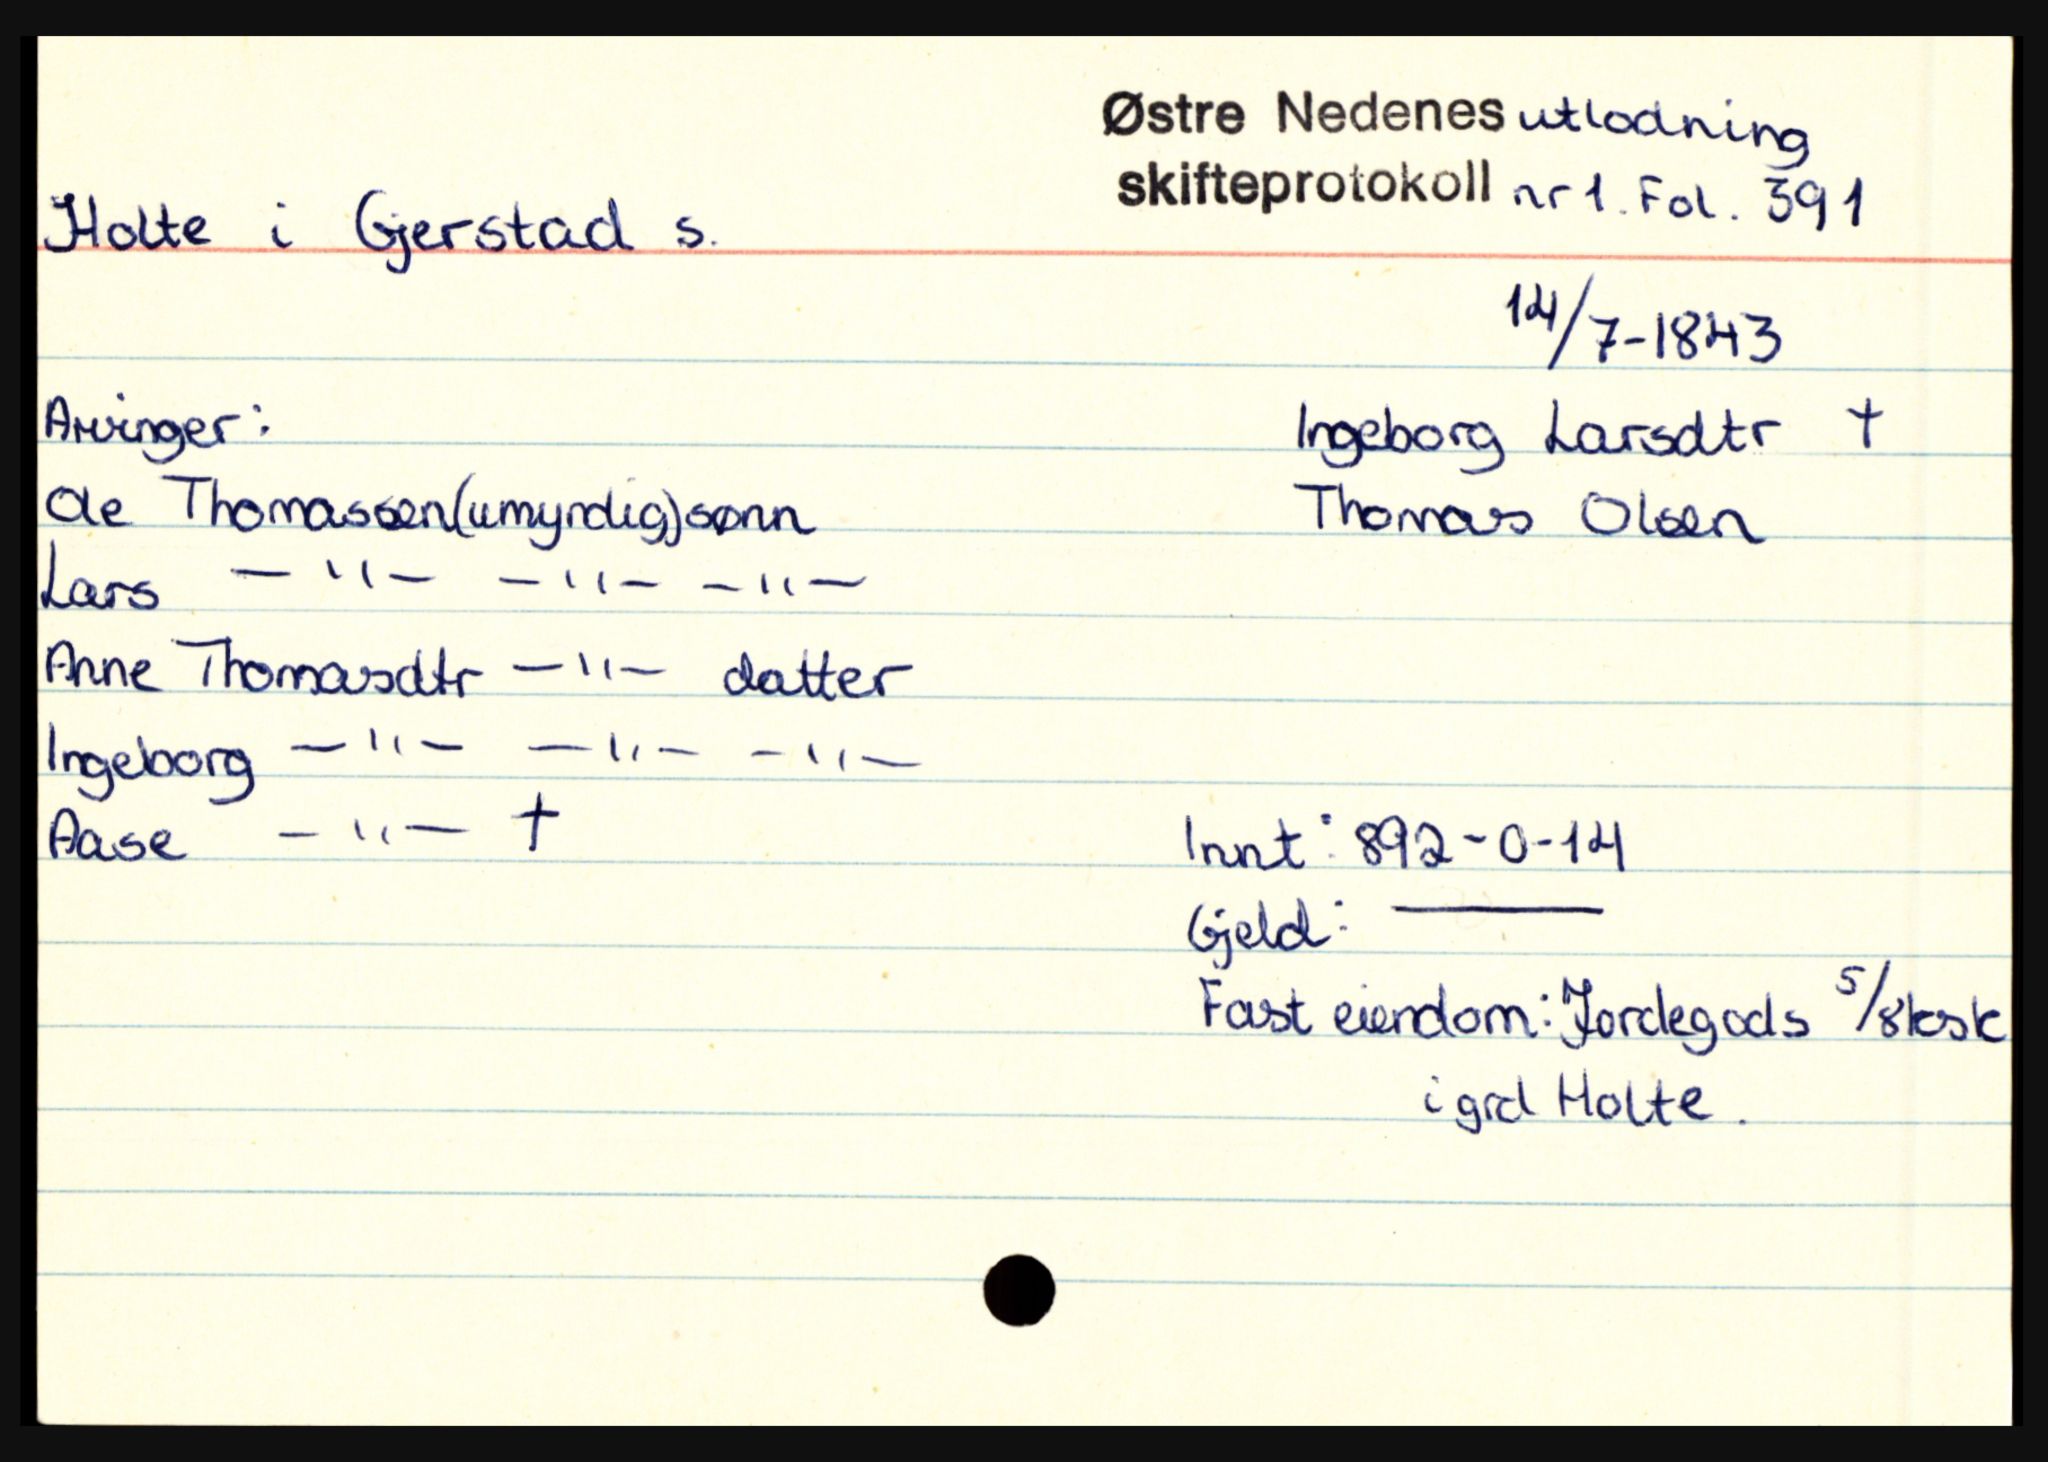 Østre Nedenes utlodning
skifteprotokoll nr 1. Fol. 391
Holte i Gjerstad s.
14/7-1843
Arvinger:
Ingeborg Larsdtr †
Ole Thomassen (umyndig) sønn
Thomas Olsen
Lars —"— —"— —"—
Anne Thomasdtr —"— datter
Ingeborg —"— —"— —"—
Aase —"— †
Innt: 892-0-14
Gjeld: ——
Fast eiendom: Jordegods 5/8 ksk
i grd Holte.